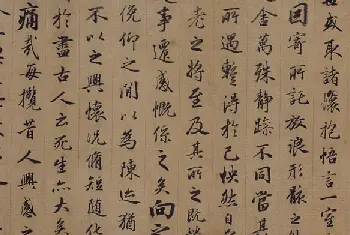 世或取諸懷抱悟言一室
因寄所託放浪形骸之外
舍萬殊靜躁不同當其
所遇蹔得於己怏然自
老之將至及其所之既
事遷感慨係之矣向之
俛仰之閒以為陳迹猶
不以之興懷況脩短隨化
於盡古人云死生亦大矣
痛哉每攬昔人興感之